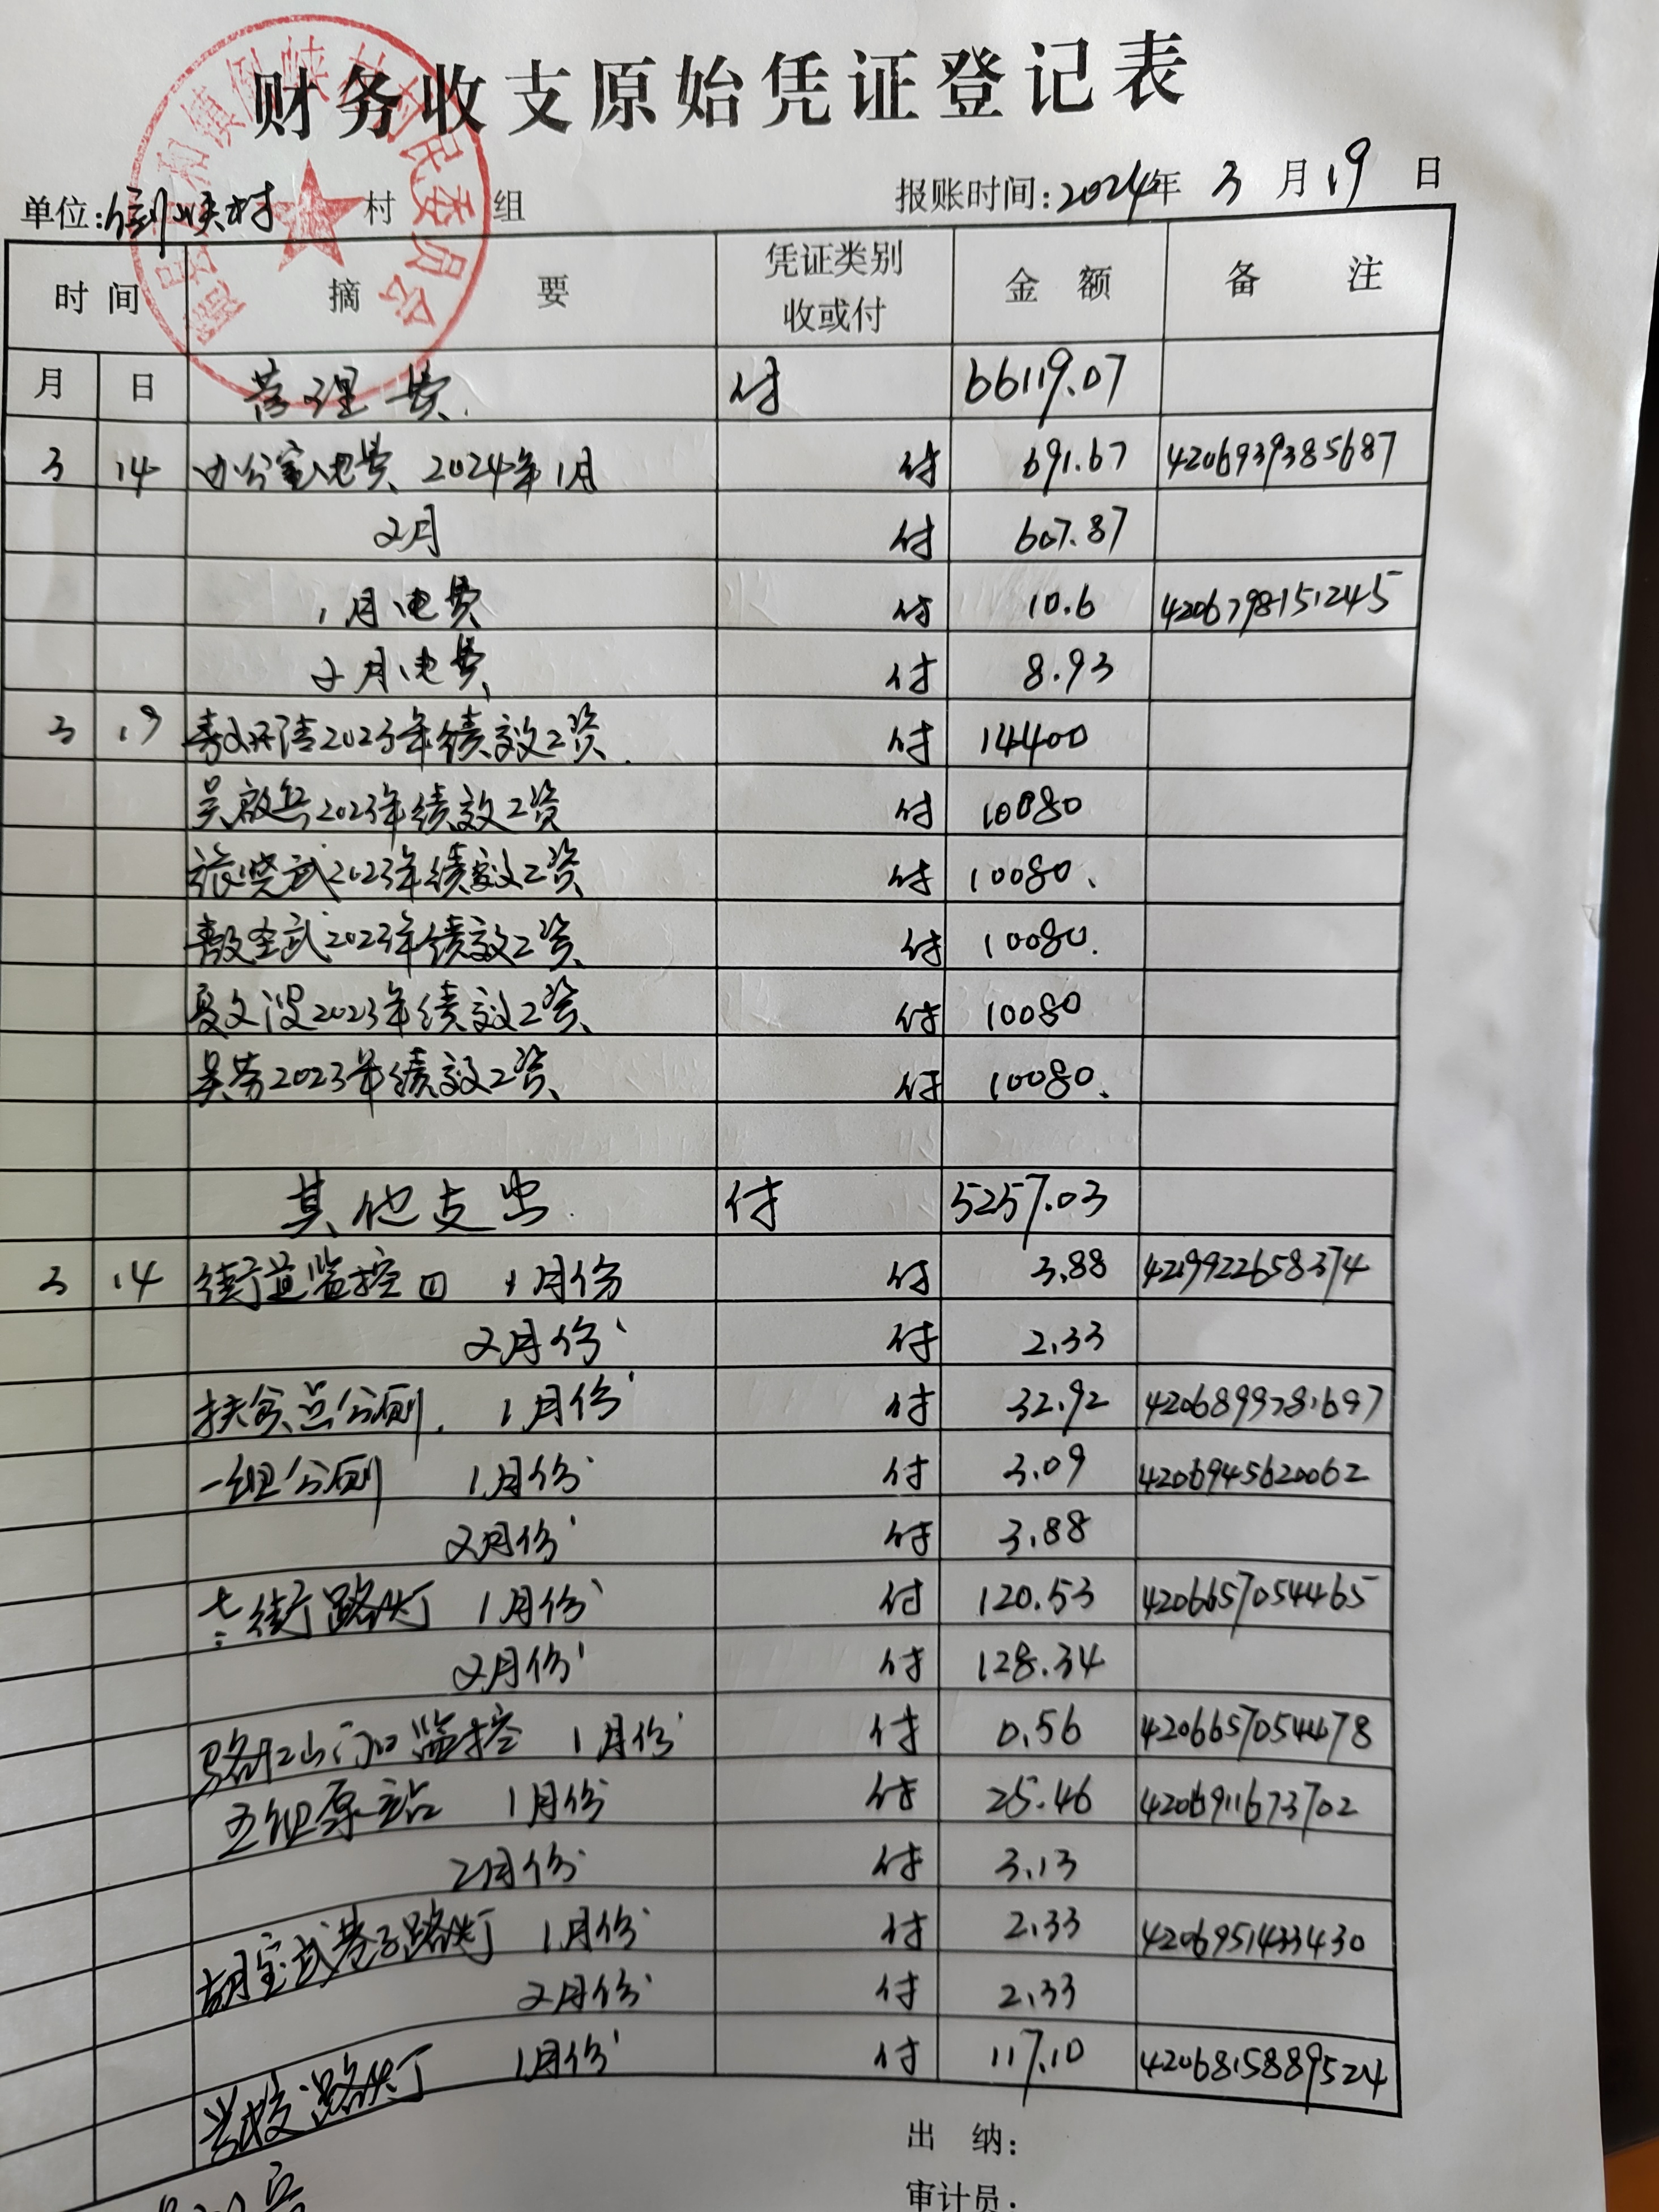 财务收支原始凭证登记表
单位:倒峡村 村 组 报账时间:2024年3月19日
时间 摘要 凭证类别 收或付 金额 备注
月 日 管理费 付 66119.07
3 14 办公室电费 2024年1月 付 691.67 4206939385687
2月 付 607.87
1月电费 付 10.6 4206798151245
2月电费 付 8.93
3 19 2023年绩效工资 付 14400
吴启兵2023年绩效工资 付 10080
张晓武2023年绩效工资 付 10080.
敖圣武2023年绩效工资 付 10080.
夏文波2023年绩效工资 付 10080
吴芳2023年绩效工资 付 10080.
其他支出 付 5257.03
3 14 街道监控四 1月份 付 3.88 4219922658374
2月份 付 2.33
扶贫点公厕. 1月份 付 32.92 4206899781697
一组公厕 1月份 付 3.09 4206945620062
2月份 付 3.88
街路灯 1月份 付 120.53 4206657054465
2月份 付 128.34
山门口监控 1月份 付 0.56 4206657054478
五组泵站 1月份 付 25.46 4206911673702
2月份 付 3.13
胡宝武巷子路灯 1月份 付 2.33 4206951433430
2月份 付 2.33
学校路灯 1月份 付 117.10 4206815889524
出纳:
审计员: